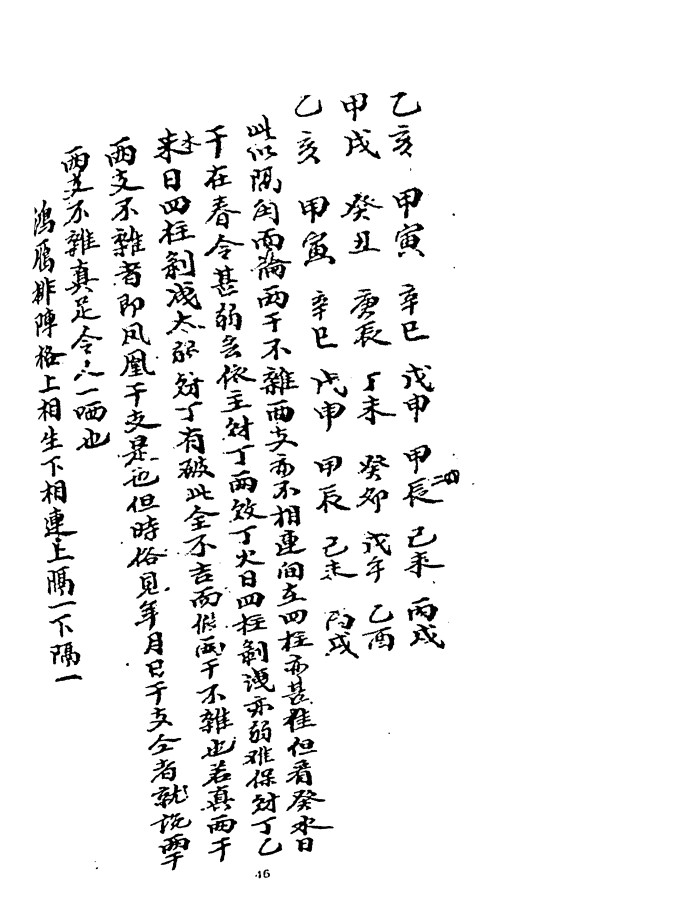 乙亥　甲寅　辛巳　戊申　甲辰　己未　丙戌
甲戌　癸丑　庚辰　丁未　癸卯　戊午　乙酉
乙亥　甲寅　辛巳　戊申　甲辰　己未　丙戌
此似隔角而論兩干不雜兩支亦不相連间在四柱亦甚雅但看癸水日
干在春令甚弱依主財丁兩敗丁火日四柱剝洩亦弱难保財丁乙
木來日四柱剝洩太弱財丁有破此全不吉而假兩干不雜也若真兩干
兩支不雜者即凤凰干支是也但時俗見年月日干支仝者就说兩干
兩支不雜真足令人一哂也
鴻雁排陣格上相生下相連上隔一下隔一
46